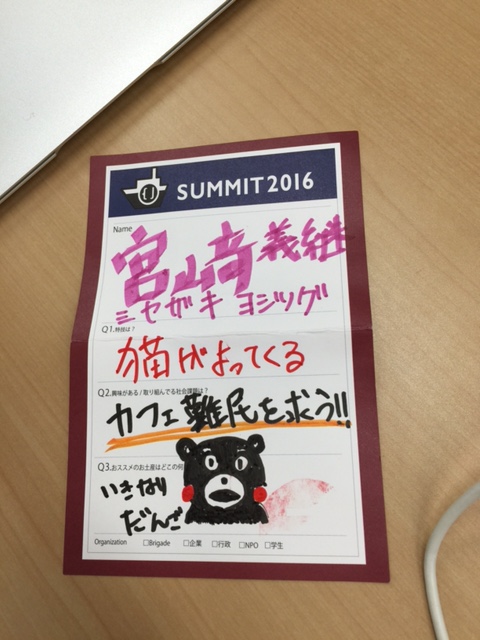 SUMMIT2016
Name
宮﨑 義継
ミヤザキ ヨシツグ
Q1.特技は?
猫がよってくる
Q2.興味がある/取り組んでる社会課題は?
カフェ難民を求う!!
Q3.おススメのお土産はどこの何
いきなり
だんご
Organization □Brigade □企業 □行政 □NPO □学生